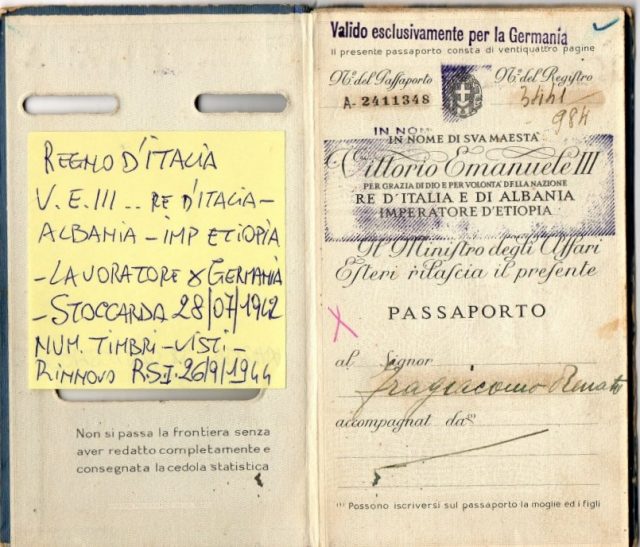 REGNO D'ITALIA
V. E. III .. RE D'ITALIA-
ALBANIA - IMP ETIOPIA
- LAVORATORE X GERMANIA
- STOCCARDA 28/07/1942
NUM. TIMBRI - VISTI -
RINNOVO RSI. 26/9/1944
Non si passa la frontiera senza
aver redatto completamente e
consegnata la cedola statistica
Valido esclusivamente per la Germania
Il presente passaporto consta di ventiquattro pagine
N.º del Passaporto
N.º del Registro
A- 2411348
3441
984
IN NOM
IN NOME DI SVA MAESTA'
Vittorio Emanuele III
PER GRAZIA DI DIO E PER VOLONTA' DELLA NAZIONE
RE D'ITALIA E DI ALBANIA
IMPERATORE D'ETIOPIA
Il Ministro degli Affari
Esteri rilascia il presente
PASSAPORTO
al Signor
Fragiacomo Renato
accompagnat da(1)
(1) Possono iscriversi sul passaporto la moglie ed i figli